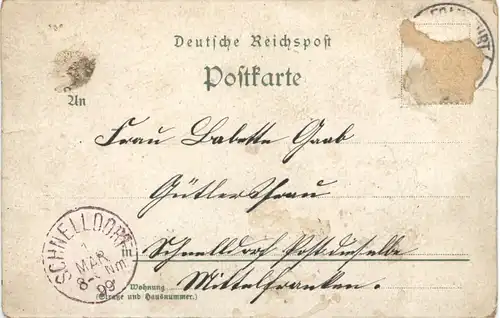 Deutsche Reichspost
Postkarte
An
Frau Babette Gaab
Gütlersfrau
in
Schnelldorf Post dieselbe
Mittelfranken.
Wohnung
(Straße und Hausnummer.)
SCHNELLDORF
1
MAR
8- Nm
99